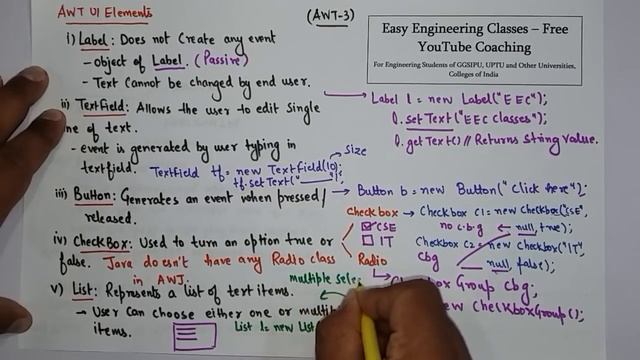 AWT UI Elements
(AWT-3)
Easy Engineering Classes – Free
YouTube Coaching
For Engineering Students of GGSIPU, UPTU and Other Universities,
Colleges of India
i) Label: Does not Create any event
- object of Label. (Passive)
- Text Cannot be changed by end user.
Label l = new Label("EEC");
l.setText("EEC classes");
l.getText() // Returns String value.
ii) TextField: Allows the user to edit single
line of text.
- event is generated by user typing in
textfield.
TextField tf = new TextField(10);
size
tf.setText("
iii) Button: Generates an event when pressed/
released.
Button b = new Button("Click here");
iv) CheckBox: Used to turn an option true or
false. Java doesn't have any Radio class
in AWT.
Checkbox
CSE
IT
Radio
Checkbox C1 = new Checkbox("CSE",
no c.b.g
null, true);
Checkbox C2 = new Checkbox("IT",
cbg
null, false);
Group cbg;
new CheckboxGroup();
v) List: Represents a list of text items.
multiple
- User can choose either one or
items.
List l = new